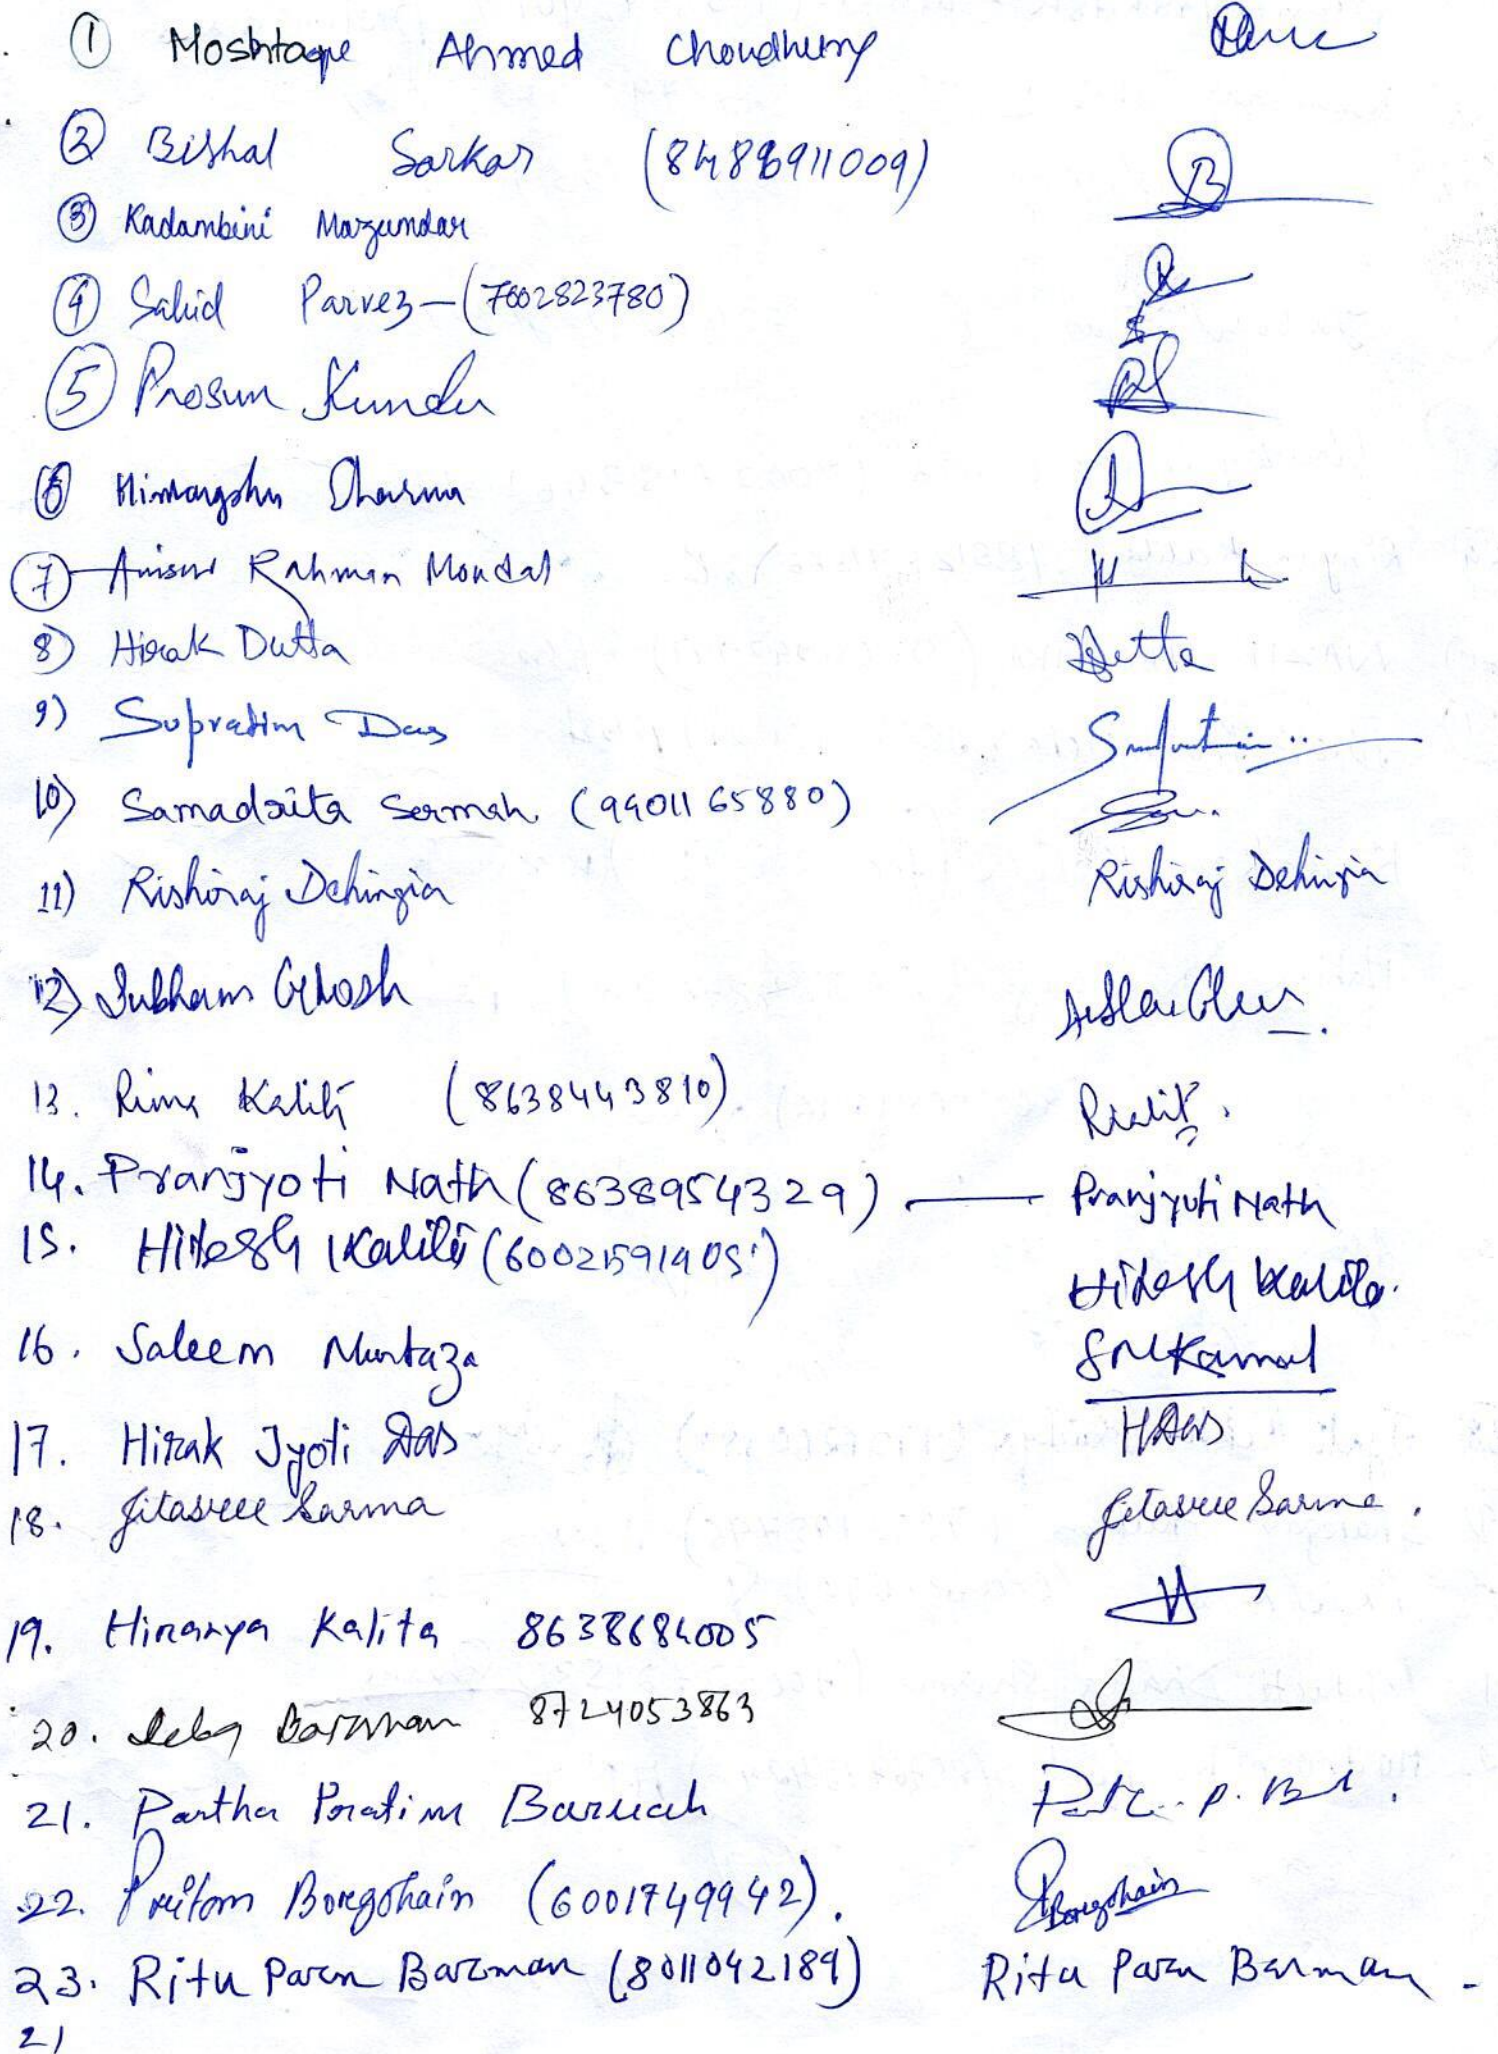 ① Moshtaque Ahmed Choudhury
② Bishal Sarkar (8486911009) B
③ Kadambini Mazumdar
④ Sahid Parvez - (7602823780)
⑤ Prosun Kundu
⑥ Himangshu Sharma
⑦ Anisur Rahman Mondal
8) Hirak Dutta Dutta
9) Supratim Das
10) Samadrita Sermah. (9401165880)
11) Rishiraj Dehingia Rishiraj Dehingia
12) Subham Ghosh
13. Rima Kalita (8638443810)
14. Pranjyoti Nath (8638954329) — Pranjyoti Nath
15. Hitesh Kalita (6002591905) Hitesh Kalita.
16. Saleem Murtaza SMKamal
17. Hirak Jyoti Das HDas
18. Jitasree Sarma Jitasree Sarma.
19. Hiranya Kalita 8638684005 H
20. Deba Barman 8724053863
21. Partha Pratim Baruah
22. Pritom Borgohain (6001749942). PBorgohain
23. Ritu Parn Barman (8011042189) Ritu Parn Barman -
21